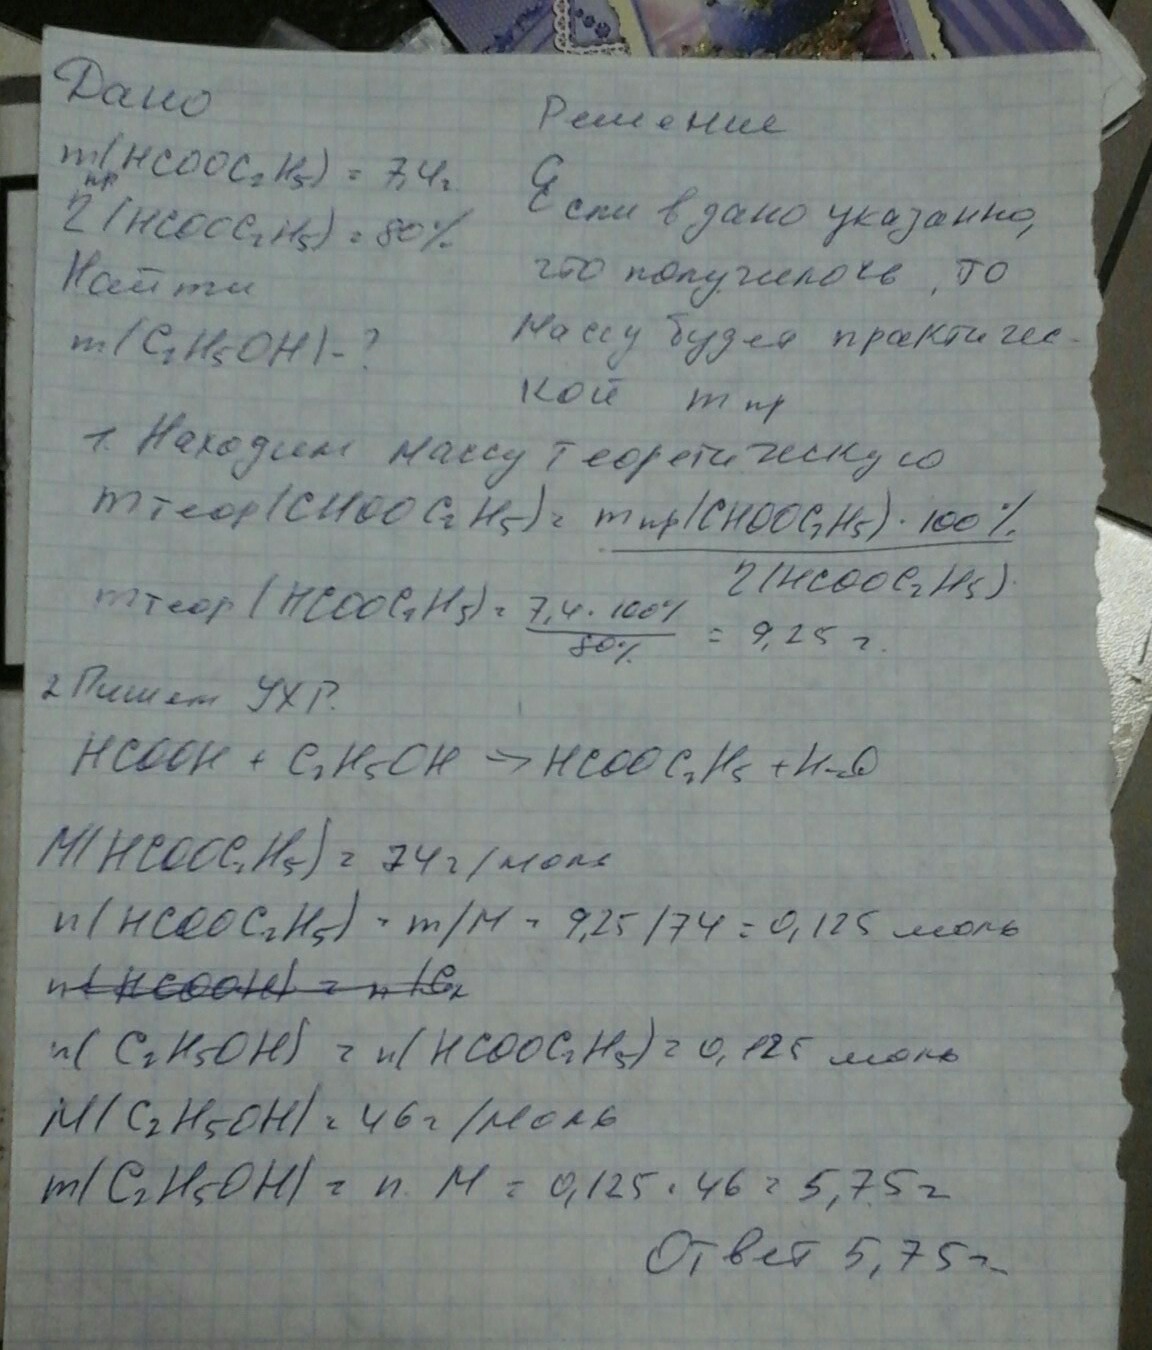 Дано
Решение
mпр(HCOOC₂H₅) = 7,4г
η(HCOOC₂H₅) = 80%
Найти
m(C₂H₅OH) - ?
Если в дано указанно,
что получилось, то
массу будет практичес-
кой m пр
1. Находим массу теоретическую
m теор(CHOOC₂H₅) = mпр(CHOOC₂H₅) · 100% / η(HCOOC₂H₅)
m теор(HCOOC₂H₅) = 7,4 · 100% / 80% = 9,25 г.
2 Пишем УХР.
HCOOH + C₂H₅OH → HCOOC₂H₅ + H₂O
M(HCOOC₂H₅) = 74 г/моль
n(HCOOC₂H₅) = m/M = 9,25/74 = 0,125 моль
n(HCOOH) = n(C₂
n(C₂H₅OH) = n(HCOOC₂H₅) = 0,125 моль
M(C₂H₅OH) = 46 г/моль
m(C₂H₅OH) = n · M = 0,125 · 46 = 5,75 г
Ответ 5,75 г